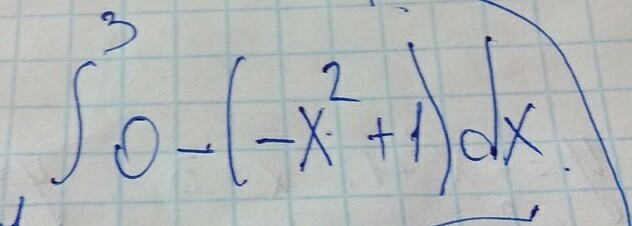 ∫³ 0 - (-x² + 1) dx.